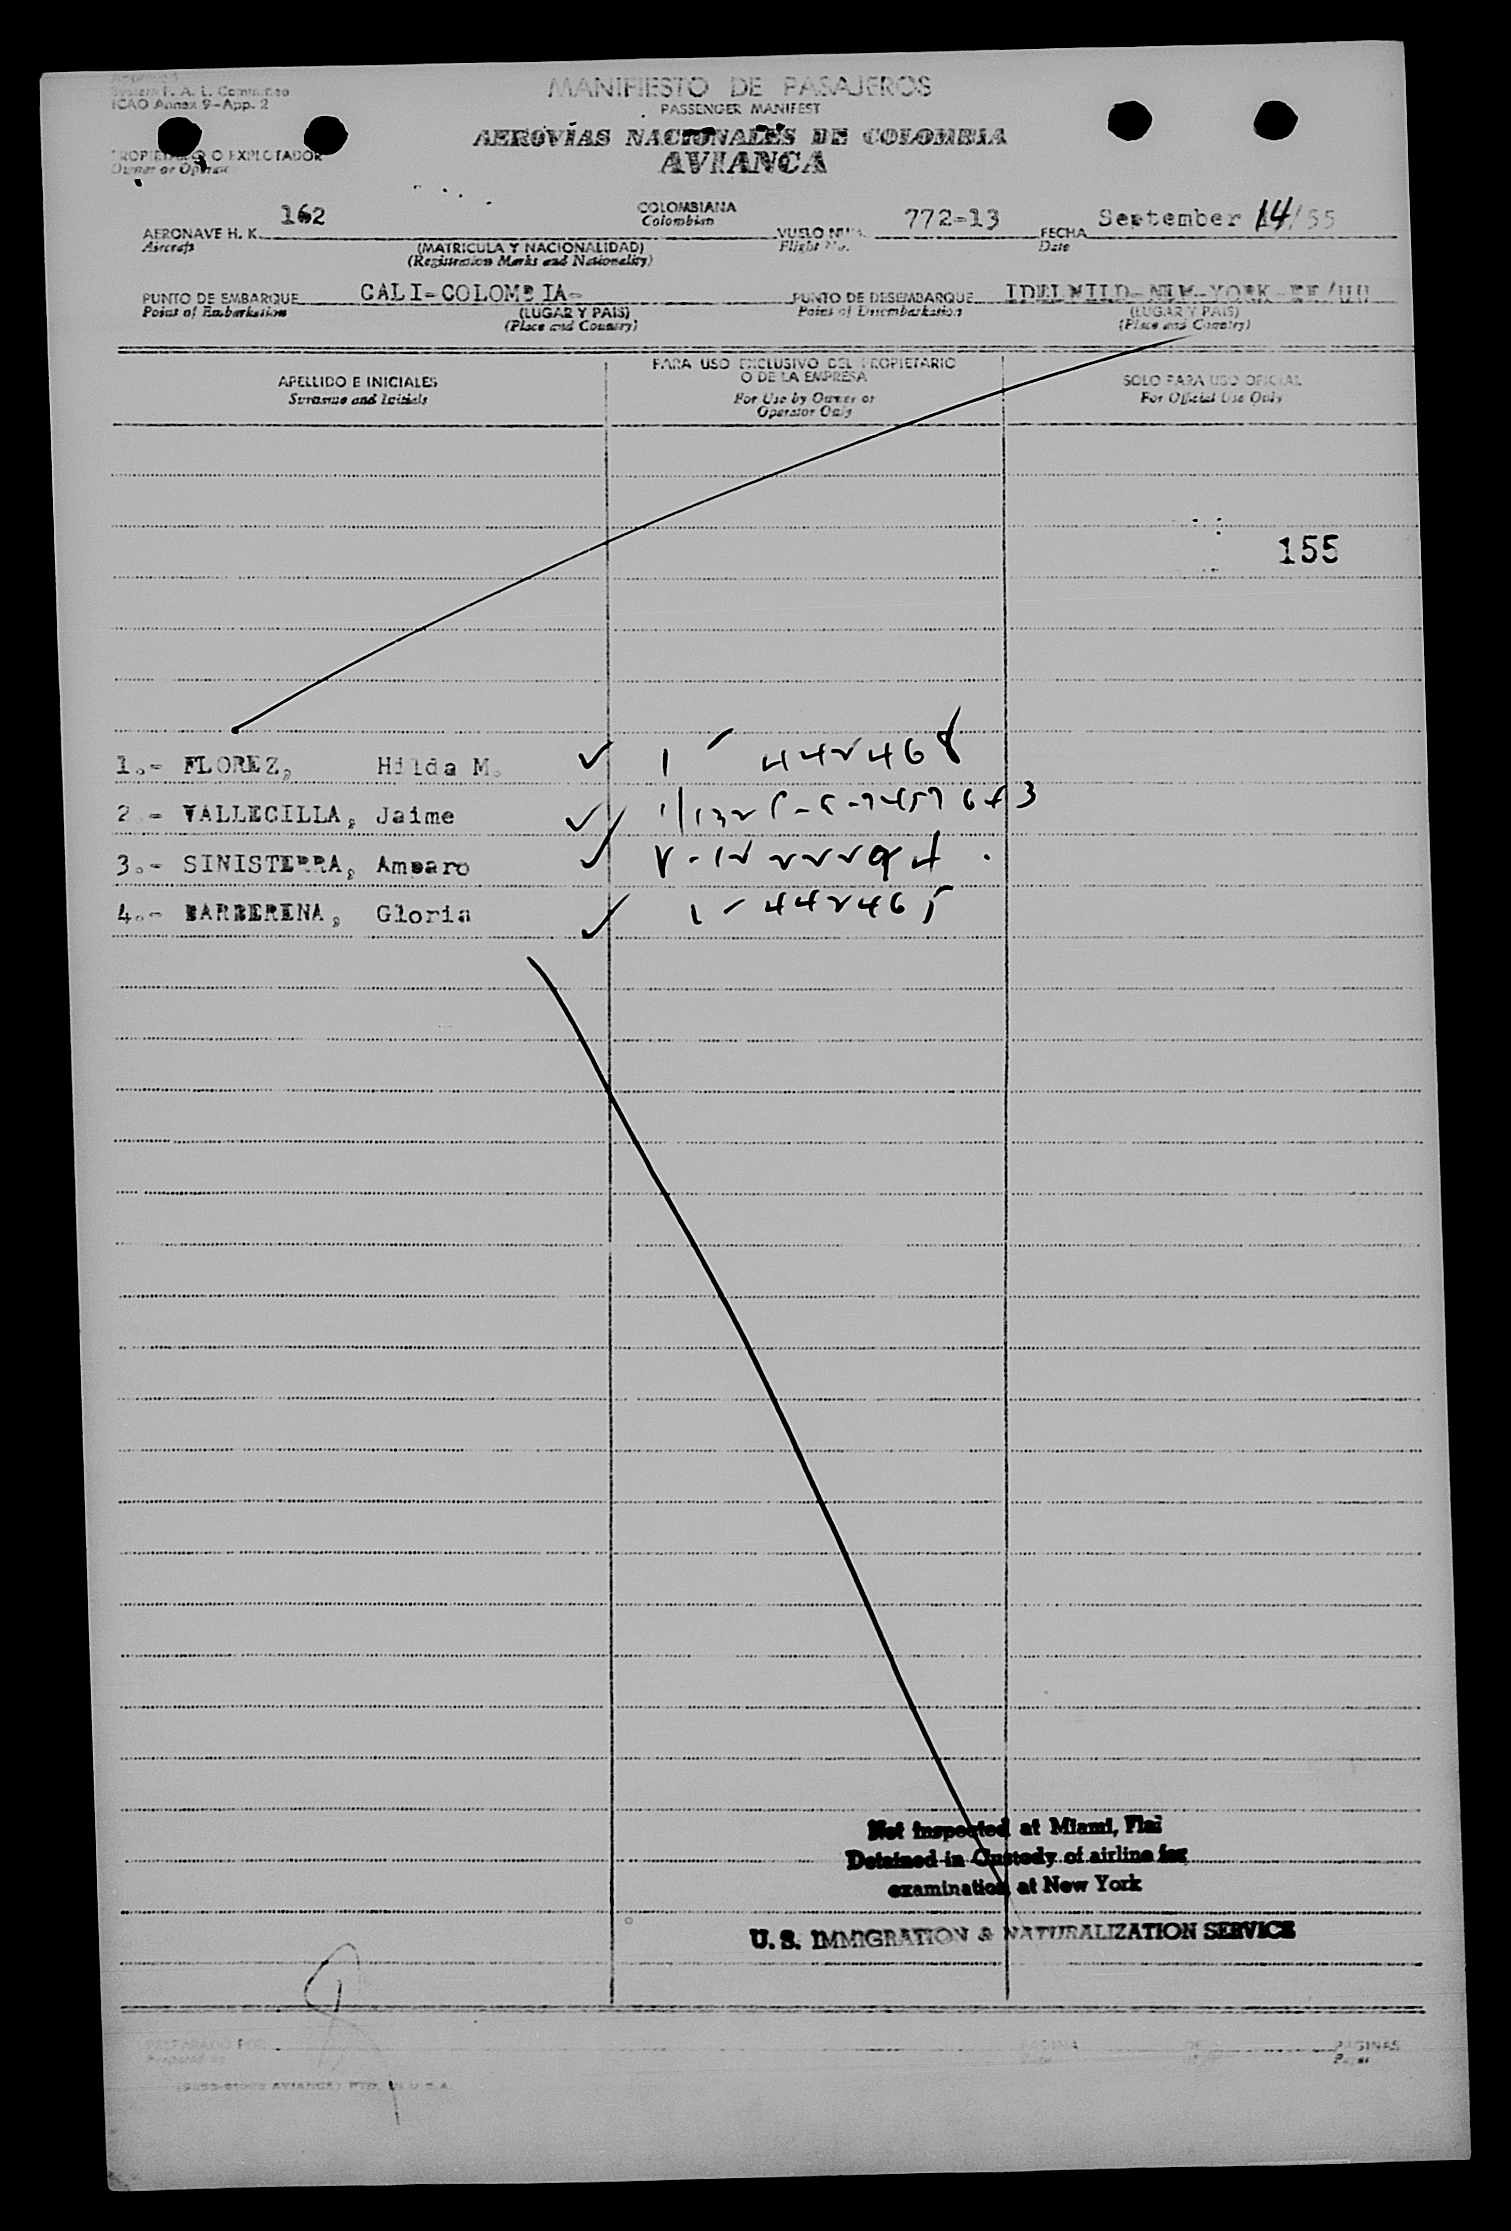 I. C. A. O. Annex 9-App. 2
MANIFIESTO DE PASAJEROS
PASSENGER MANIFEST
AEROVÍAS NACIONALES DE COLOMBIA
AVIANCA
PROPIETARIO O EXPLOTADOR
Owner or Operator
AERONAVE H. K. 162 COLOMBIANA VUELO NUM. 772-13 FECHA September 14/55
Aircraft Colombian Flight No. Date
(MATRICULA Y NACIONALIDAD)
(Registration Marks and Nationality)
PUNTO DE EMBARQUE CALI-COLOMBIA- PUNTO DE DESEMBARQUE IDELWILD-NEW-YORK-EE/UU
Point of Embarkation (LUGAR Y PAIS) Point of Disembarkation (LUGAR Y PAIS)
(Place and Country) (Place and Country)
APELLIDO E INICIALES
Surname and Initials
PARA USO EXCLUSIVO DEL PROPIETARIO
O DE LA EMPRESA
For Use by Owner or
Operator Only
SOLO PARA USO OFICIAL
For Official Use Only
155
1.- FLOREZ, Hilda M. ✓ 1 - 442468
2.- VALLECILLA, Jaime ✓
3.- SINISTERRA, Amparo ✓
4.- BARBERENA, Gloria ✓ 1 - 442465
Not inspected at Miami, Fla.
Detained in Custody of airline for
examination at New York
U. S. IMMIGRATION & NATURALIZATION SERVICE
PREPARADO POR PAGINA DE PAGINAS
Prepared by Pages